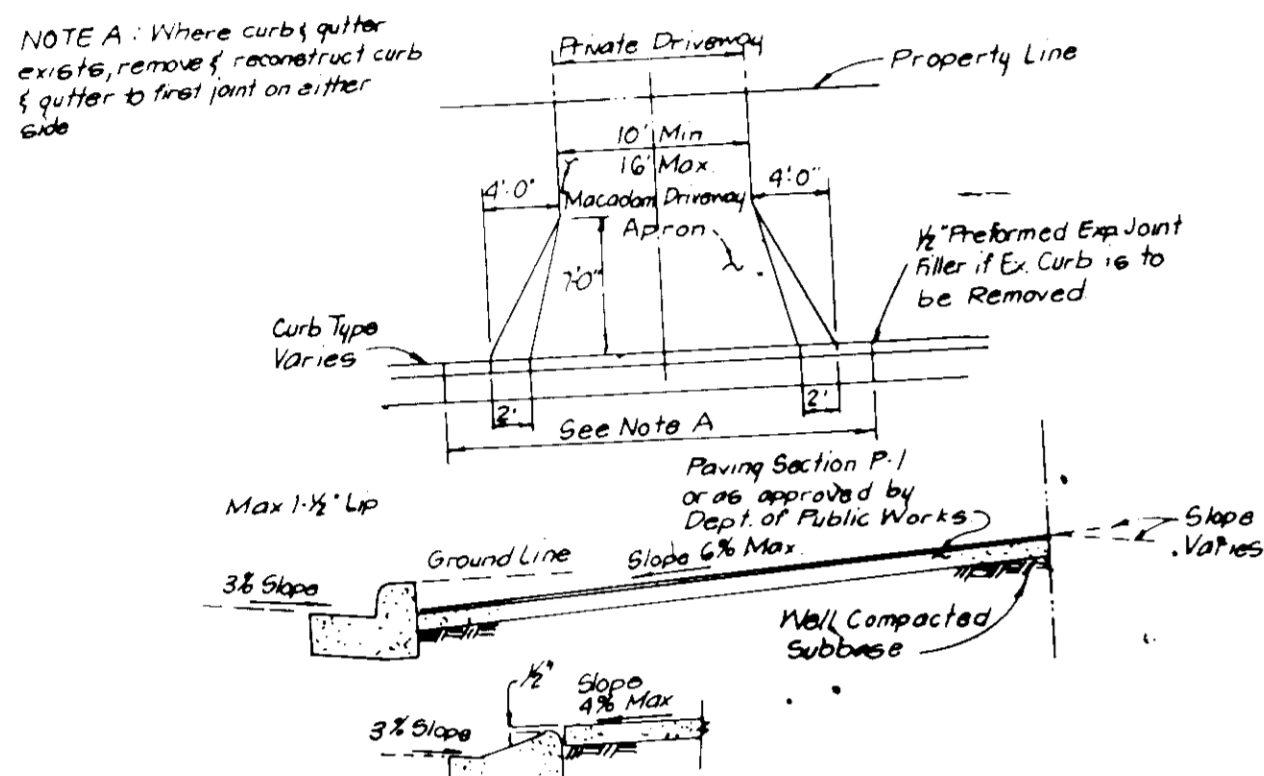 NOTE A: Where curb & gutter
exists, remove & reconstruct curb
& gutter to first joint on either
side
Private Driveway
Property Line
10' Min
16' Max.
4'-0"
4'-0"
Macadam Driveway
Apron
7'-0"
1/2" Preformed Exp. Joint
Filler if Ex. Curb is to
be Removed
Curb Type
Varies
2'
2'
See Note A
Paving Section P-1
or as approved by
Dept. of Public Works
Max 1-1/2" Lip
Ground Line
Slope 6% Max.
Slope
Varies
3% Slope
Well Compacted
Subbase
1/2"
Slope
4% Max
3% Slope